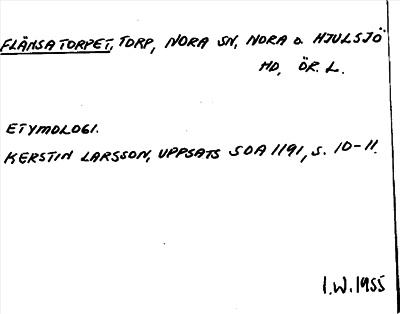 FLÄNSATORPET, TORP, NORA SN, NORA o. HJULSJÖ
HD, ÖR. L.
ETYMOLOGI.
KERSTIN LARSSON, UPPSATS SOA 1191, S. 10-11.
I.W. 1955